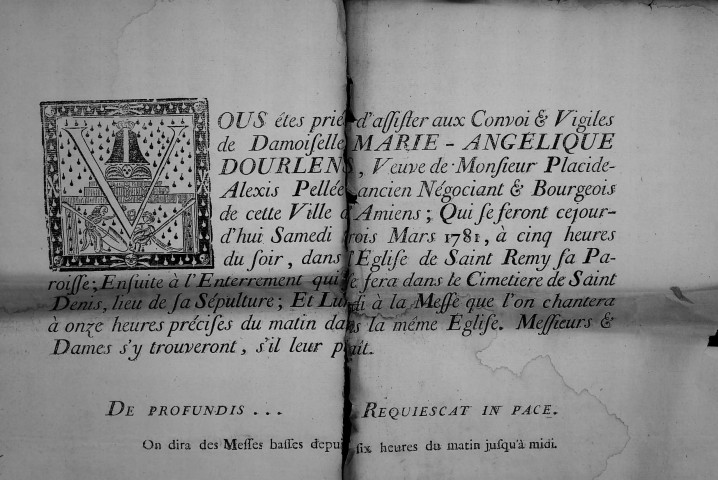 VOUS êtes prié d'assister aux Convoi & Vigiles
de Damoiselle MARIE-ANGÉLIQUE
DOURLENS, Veuve de Monsieur Placide-
Alexis Pellée ancien Négociant & Bourgeois
de cette Ville d'Amiens; Qui se feront cejour-
d'hui Samedi trois Mars 1781, à cinq heures
du soir, dans l'Église de Saint Remy sa Pa-
roisse; Ensuite à l'Enterrement qui se fera dans le Cimetiere de Saint
Denis, lieu de sa Sépulture; Et Lundi à la Messe que l'on chantera
à onze heures précises du matin dans la même Eglise. Messieurs &
Dames s'y trouveront, s'il leur plait.
DE PROFUNDIS... REQUIESCAT IN PACE.
On dira des Messes basses depuis six heures du matin jusqu'à midi.